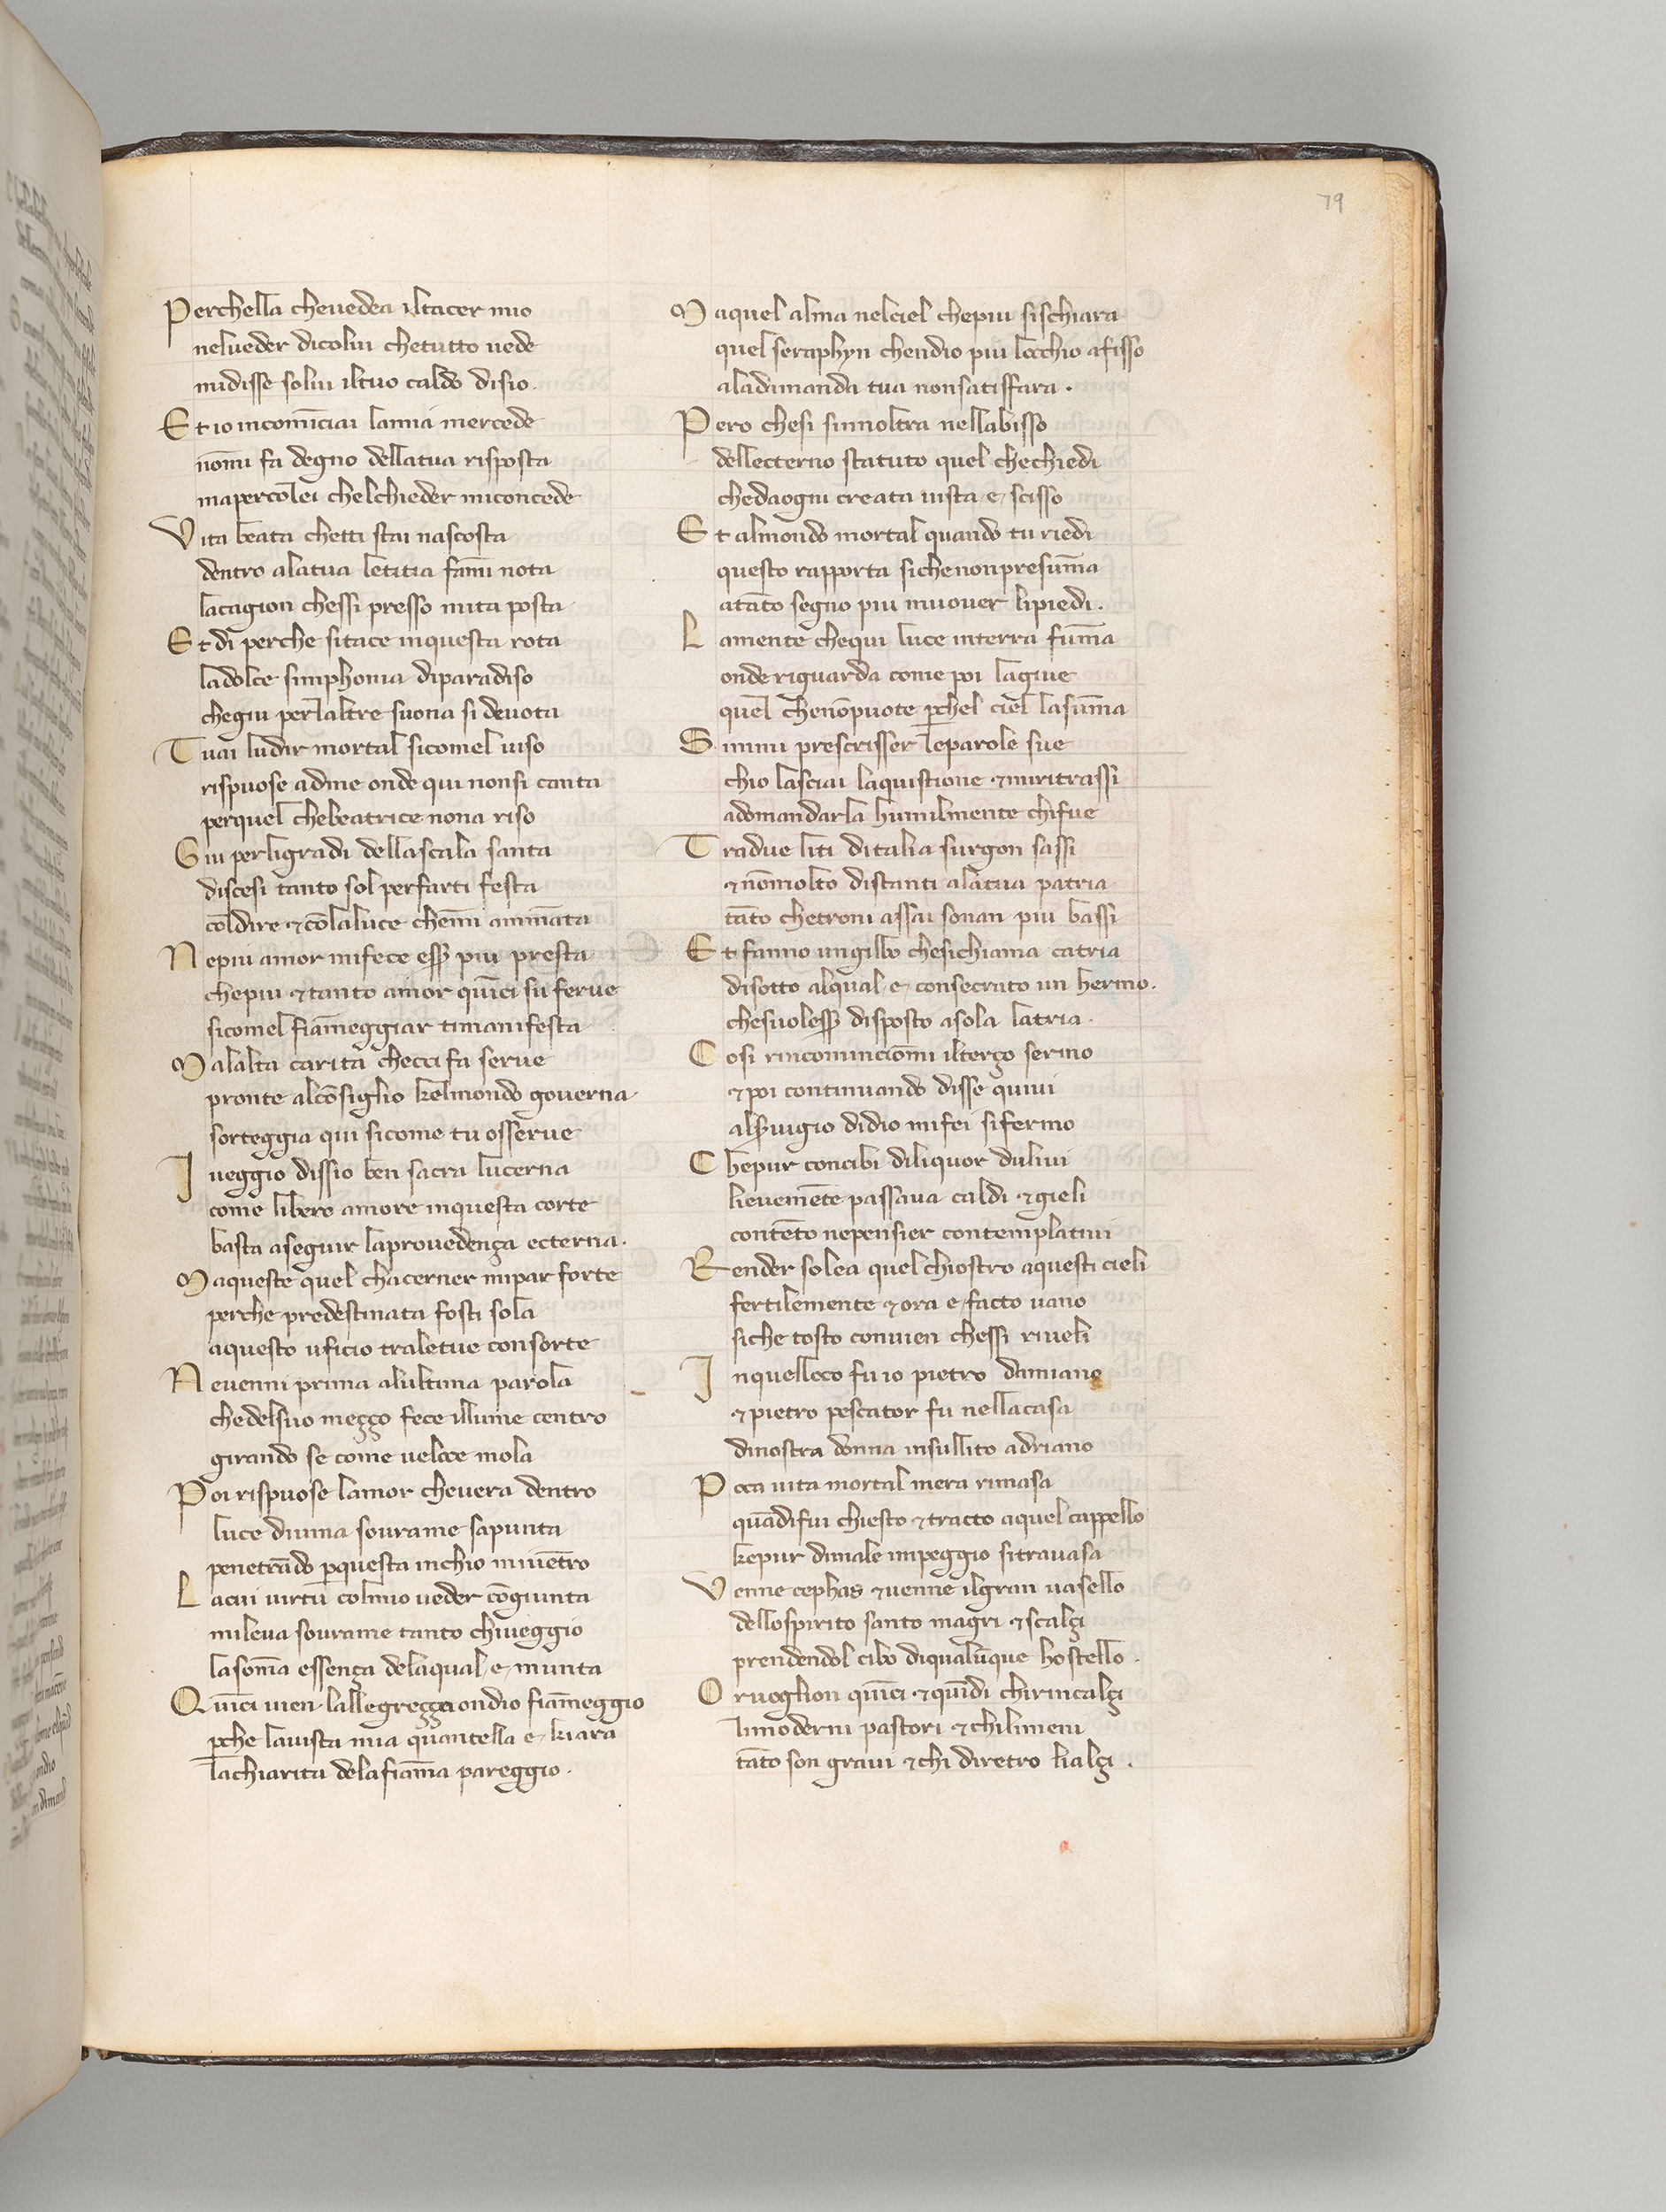 79
Perchella cheuedea iltacer mio
nelueder dicolui chetutto uede
midisse solui iltuo caldo disio.
Et io incomīciai lamia mercede
nōmi fa degno dellatua risposta
mapercolei chelchieder miconcede
Vita beata chetti stai nascosta
dentro alatua letitia fāmi nota
lacagion chessi presso mita posta
Et di perche sitace inquesta rota
ladolce simphonia diparadiso
chegiu perlaltre suona si deuota
Tuai ludir mortal sicomel uiso
rispuose adme onde qui nonsi canta
perquel chebeatrice nona riso
Giu perligradi dellascala santa
discesi tanto sol perfarti festa
coldire & cōlaluce chemi āmāta
Nepiu amor mifece esser piu presta
chepiu & tanto amor quīci su ferue
sicomel fiāmeggiar timanifesta
Malalta carita checci fa serue
pronte alcōsiglio kelmondo gouerna
sorteggia qui sicome tu osserue
I ueggio dissio ben sacra lucerna
come libero amore inquesta corte
basta aseguir laprouedença ecterna.
Maqueste quel chacerner mipar forte
perche predestinata fosti sola
aquesto uficio traletue consorte
Neuenni prima alultima parola
chedelsuo meggo fece illume centro
girando se come ueloce mola
Poi rispuose lamor cheuera dentro
luce diuina sourame sapunta
penetrādo perquesta inchio miuētro
Lacui uirtu colmio ueder cōgiunta
mileua sourame tanto chiueggio
lasoma essença delaqual e munta
Quīci uien lallegreçça ondio fiāmeggio
perche lauista mia quantella e kiara
lachiarita delafiāma pareggio.
Maquel alma nelciel chepiu sischiara
quel seraphyn chendio piu locchio afisso
aladimanda tua nonsatisfara.
Pero chesi sinnoltra nellabisso
dellecterno statuto quel chechiedi
chedaogni creata uista e scisso
Et almondo mortal quando tu riedi
questo rapporta sichenonpresūma
atāto segno piu muouer lipiedi.
Lamente chequi luce interra fūma
onde riguarda come poi lagiue
quel chenōpuote perchel ciel lasūma
Simmi prescrisser leparole sue
chio lasciai laquistione & miritrassi
adomandarla humilmente chifue
Tradue liti ditalia surgon sassi
& nōmolto distanti alatua patria
tāto chetroni assai sonan piu bassi
Et fanno ungibbo chesichiama catria
disotto alqual e consecrato un hermo.
chesuolesser disposto asola latria.
Cosi rincominciōmi ilterço sermo
& poi continuando disse quiui
alseruigio didio mifei sifermo
Chepur concibi diliquor duliui
lieuemēte passaua caldi & gieli
contēto nepensier contemplatiui
Render solea quel chiostro aquesti cieli
fertilemente & ora e facto uano
siche tosto conuien chessi riueli
Inquelloco fu io pietro damiano
& pietro pescator fu nellacasa
dinostra donna insullito adriano
Poca uita mortal mera rimasa
quādifui chiesto & tracto aquel cappello
kepur dimale impeggio sitrauasa
Venne cephas & uenne ilgran uasello
dellospirito santo magri & scalçi
prendendol cibo diqualūque hostello.
Oruoglion quīci & quīdi chirincalçi
limoderni pastori & chilimeni
tāto son graui & chi diretro lialçi.